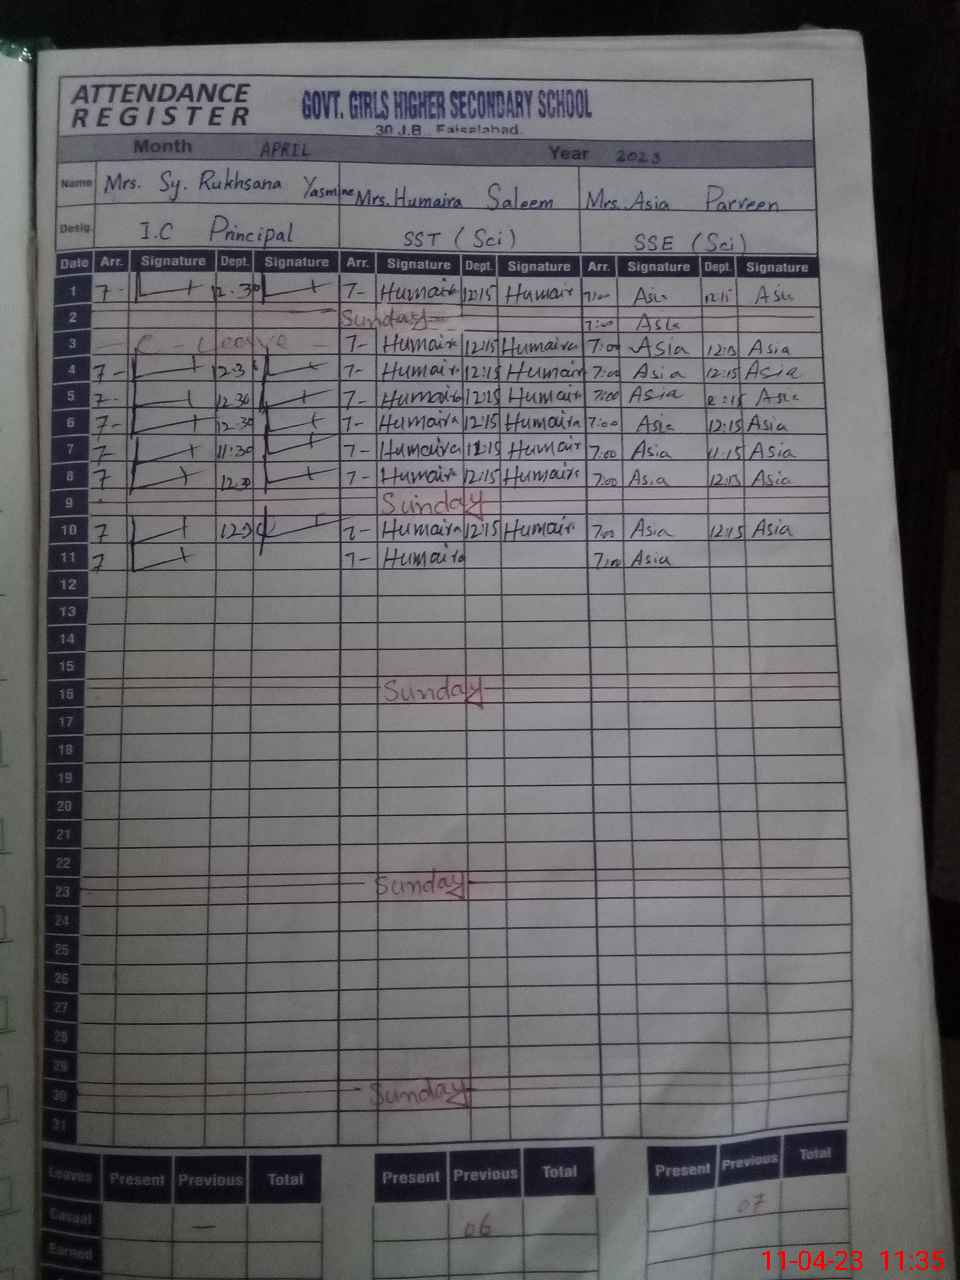 ATTENDANCE REGISTER
GOVT. GIRLS HIGHER SECONDARY SCHOOL
30 J.B. Faisalabad.
Month APRIL Year 2023
Name Mrs. Sy. Rukhsana Yasmine Mrs. Humaira Saleem Mrs. Asia Parveen
Desig. I.C Principal SST (Sci) SSE (Sci)
Date Arr. Signature Dept. Signature Arr. Signature Dept. Signature Arr. Signature Dept. Signature
1 7- 12.30 7- Humaira 12:15 Humair 7:00 Asia 12:15 Asia
2 Sunday 7:00 Asia
3 C - Leave - 7- Humaira 12:15 Humaira 7:00 Asia 12:15 Asia
4 7- 12.30 7- Humair 12:15 Humair 7:00 Asia 12:15 Asia
5 7- 12.30 7- Humaira 12:15 Humair 7:00 Asia 12:15 Asia
6 7- 12.30 7- Humaira 12:15 Humaira 7:00 Asia 12:15 Asia
7 7- 11:30 7- Humaira 11:15 Humair 7:00 Asia 11:15 Asia
8 7 12.30 7- Humair 12:15 Humaira 7:00 Asia 12:15 Asia
9 Sunday
10 7 12.30 7- Humaira 12:15 Humair 7:00 Asia 12:15 Asia
11 7 7- Humaira 7:00 Asia
12
13
14
15
16 Sunday
17
18
19
20
21
22
23 Sunday
24
25
26
27
28
29
30 Sunday
31
Leaves Present Previous Total Present Previous Total Present Previous Total
Casual — 06 07
Earned
11-04-23 11:35